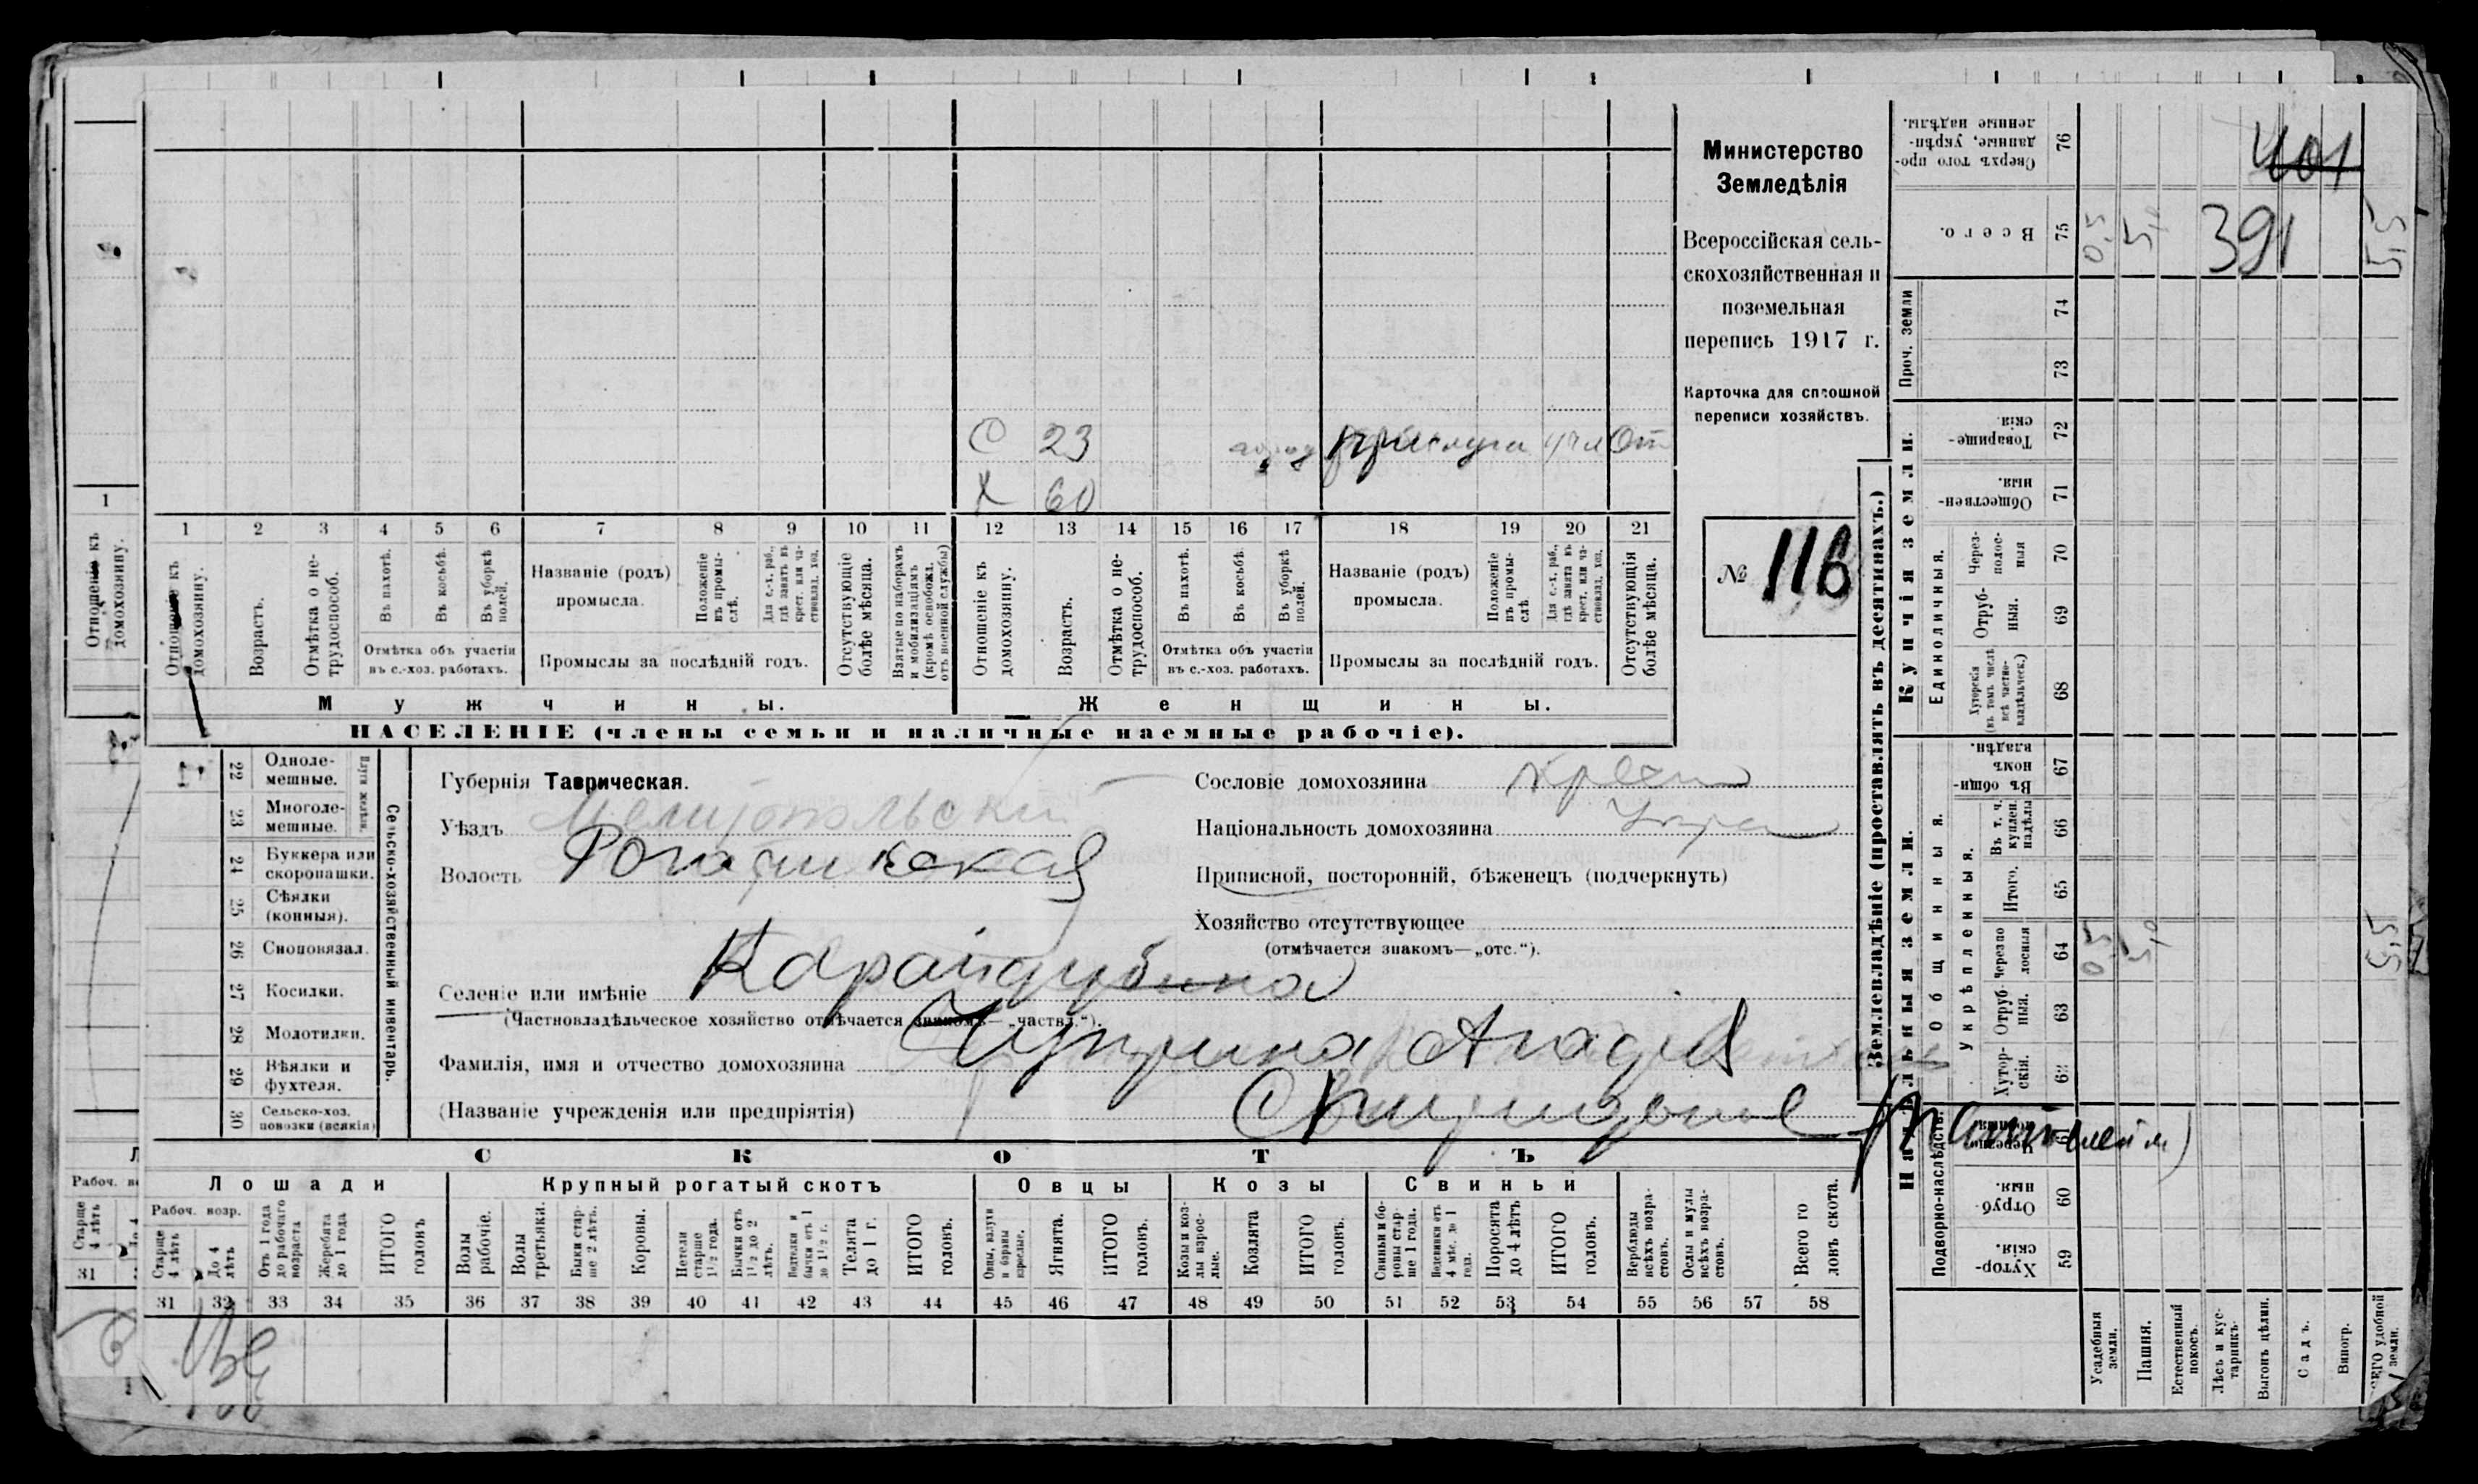 Министерство
Земледѣлія
Всероссійская сель-
скохозяйственная и
поземельная
перепись 1917 г.
Карточка для сплошной
переписи хозяйствъ.
№ 116
С 23 прислуга От
Х 60
1 2 3 4 5 6 7 8 9 10 11 12 13 14 15 16 17 18 19 20 21
Отношеніе къ домохозяину.
Возрастъ.
Отмѣтка о не-трудоспособ.
Въ пахотѣ.
Въ косьбѣ.
Въ уборкѣ полей.
Отмѣтка объ участіи въ с.-хоз. работахъ.
Названіе (родъ) промысла.
Положеніе въ промы-слѣ.
Для с.-х. раб., гдѣ занятъ въ крест. или ча-стновлад. хоз.
Промыслы за послѣдній годъ.
Отсутствующіе болѣе мѣсяца.
Взятые по наборамъ и мобилизаціямъ (кромѣ освобожд. отъ военной службы)
Отношеніе къ домохозяину.
Возрастъ.
Отмѣтка о не-трудоспособ.
Въ пахотѣ.
Въ косьбѣ.
Въ уборкѣ полей.
Отмѣтка объ участіи въ с.-хоз. работахъ.
Названіе (родъ) промысла.
Положеніе въ промы-слѣ
Для с.-х. раб., гдѣ занята въ крест. или ча-стновлад. хоз.
Промыслы за послѣдній годъ.
Отсутствующія болѣе мѣсяца.
Мужчины. Женщины.
НАСЕЛЕНІЕ (члены семьи и наличные наемные рабочіе).
22 Одноле-мешные.
23 Многоле-мешные.
Плуги желѣзн.
24 Буккера или скоропашки.
25 Сѣялки (конныя).
26 Сноповязал.
27 Косилки.
28 Молотилки.
29 Вѣялки и фухтеля.
30 Сельско-хоз. повозки (всякія)
Сельско-хозяйственный инвентарь.
Губернія Таврическая.
Уѣздъ Мелитопольский
Волость Рогачикская
Селеніе или имѣніе Карайдубина
(Частновладѣльческое хозяйство отмѣчается знакомъ—„частвл.“).
Фамилія, имя и отчество домохозяина Чуприна
(Названіе учрежденія или предпріятія)
Сословіе домохозяина крест
Національность домохозяина Укра
Приписной, посторонній, бѣженецъ (подчеркнуть)
Хозяйство отсутствующее
(отмѣчается знакомъ—„отс.“).
СКОТЪ
Лошади Крупный рогатый скотъ Овцы Козы Свиньи
Рабоч. возр.
Старше 4 лѣтъ
До 4 лѣтъ
Отъ 1 года до рабочаго возраста
Жеребята до 1 года
ИТОГО головъ
Волы рабочіе.
Волы третьяки.
Быки стар-ше 2 лѣтъ.
Коровы.
Нетели старше 1½ года.
Бычки отъ 1½ до 2 лѣтъ.
Телята до 1 г.
ИТОГО головъ.
Овцы, валухи и бараны взрослые.
Ягнята.
ИТОГО головъ.
Козы и коз-лы взрос-лые.
Козлята
ИТОГО головъ.
Свиньи и бо-ровы стар-ше 1 года.
Подсвинки отъ 4 мѣс. до 1 года.
Поросята до 4 мѣс.
ИТОГО головъ.
Верблюды всѣхъ возра-стовъ.
Ослы и мулы всѣхъ возра-стовъ.
Всего го-ловъ скота.
31 32 33 34 35 36 37 38 39 40 41 42 43 44 45 46 47 48 49 50 51 52 53 54 55 56 57 58
Землевладѣніе (проставлять въ десятинахъ.)
Надѣльныя земли. Купчія земли. Проч. земли
Подворно-наслѣдств.
Общинныя.
Укрѣпленныя.
Единоличныя.
59 Хутор-скія.
60 Отруб-ныя.
62 Хутор-скія.
63 Отруб-ныя.
64 Черезпо-лосныя 0,5 5,0 5,5
65 Итого.
66 Въ т. ч. куплен. надѣлы
67 Въ общин-номъ владѣн.
68 Хуторскія (въ томъ числѣ всѣ частно-владѣльческ.)
69 Отруб-ныя.
70 Через-полос-ныя
71 Обществен-ныя.
72 Товарище-скія
73
74
75 Всего. 0,5 5,0 5,5
76 Сверхъ того про-данные, укрѣп-ленные надѣлы.
401
391
Усадебныя земли.
Пашня.
Естественный покосъ.
Лѣсъ и кус-тарникъ
Выгонъ цѣлин.
Садъ.
Виногр.